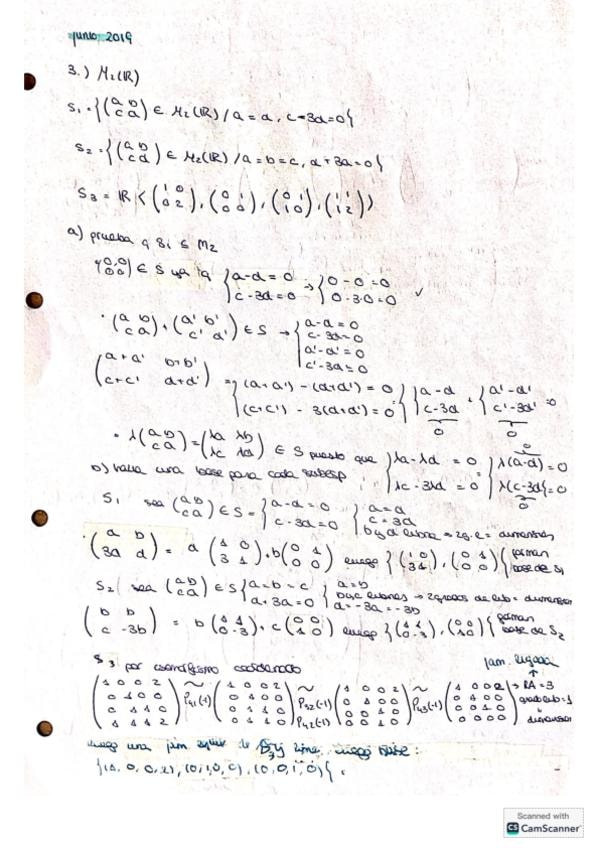 junio, 2019
3.) M₂(ℝ)
S₁ = {(a b / c d) ∈ M₂(ℝ) / a = d, c-3d=0}
S₂ = {(a b / c d) ∈ M₂(ℝ) / a=b=c, d+3a=0}
S₃ = ℝ<(1 0 / 0 2), (0 1 / 0 0), (0 1 / 1 0), (1 1 / 1 2)>
a) prueba q Si ≤ M₂
(0 0 / 0 0) ∈ S {a-d=0 / c-3d=0 → {0-0=0 / 0-3·0=0 ✓
· (a b / c d) + (a' b' / c' d') ∈ S → {a-d=0 / c-3d=0 / a'-d'=0 / c'-3d'=0
(a+a' b+b' / c+c' d+d') = {(a+a') - (d+d') = 0 / (c+c') - 3(d+d') = 0 {a-d / c-3d + {a'-d' / c'-3d' = 0
0 0
· λ(a b / c d) = (λa λb / λc λd) ∈ S puesto que {λa-λd = 0 / λc-3λd = 0 = {λ(a-d)=0 / λ(c-3d)=0
b) halla una base para cada subesp.
S₁ sea (a b / c d) ∈ S = {a-d=0 / c-3d=0 {a=d / c=3d / b y d libres → 2 g. l = dimension
· (a b / 3a d) = a (1 0 / 3 1) + b(0 1 / 0 0) luego {(1 0 / 3 1), (0 1 / 0 0)} forman base de S₁
S₂ sea (a b / c d) ∈ S {a=b=c / d+3a=0 {a=b / b y c libres → 2 grados de lib = dimension / d=-3a=-3b
(b b / c -3b) = b(1 1 / 0 -3) + c(0 0 / 1 0) luego {(1 1 / 0 -3), (0 0 / 1 0)} forman base de S₂
S₃ por isomorfismo coordenado fam. ligada
(1 0 0 2 / 0 1 0 0 / 0 1 1 0 / 1 1 1 2) ~ P₄₁(-1) (1 0 0 2 / 0 1 0 0 / 0 1 1 0 / 0 1 1 0) ~ P₃₂(-1) P₄₂(-1) (1 0 0 2 / 0 1 0 0 / 0 0 1 0 / 0 0 1 0) ~ P₄₃(-1) (1 0 0 2 / 0 1 0 0 / 0 0 1 0 / 0 0 0 0) → RA = 3
luego una fam de S₃ luego base:
{(1, 0, 0, 2), (0, 1, 0, 0), (0, 0, 1, 0)}.
Scanned with
CS CamScanner